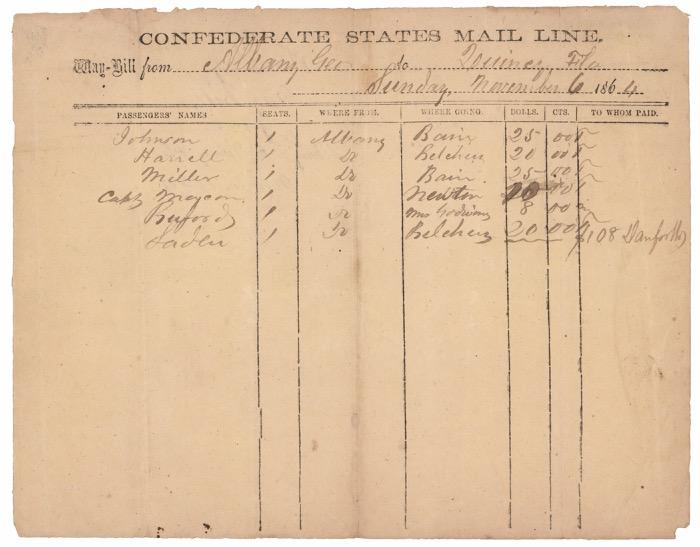 CONFEDERATE STATES MAIL LINE.
Way-Bill from Albany Geo to Quincy, Fla
Sunday, November 6 1864
PASSENGERS' NAMES SEATS. WHERE FROM. WHERE GOING. DOLLS. CTS. TO WHOM PAID.
Johnson 1 Albany Bain 25 00
Harrell 1 Do Belcher 20 00
Miller 1 Do Bain. 25 00
Capt 1 Do Newton 10 00
1 Do Mrs 8 00
1 Do Belcher 20 00 $108 Danforth